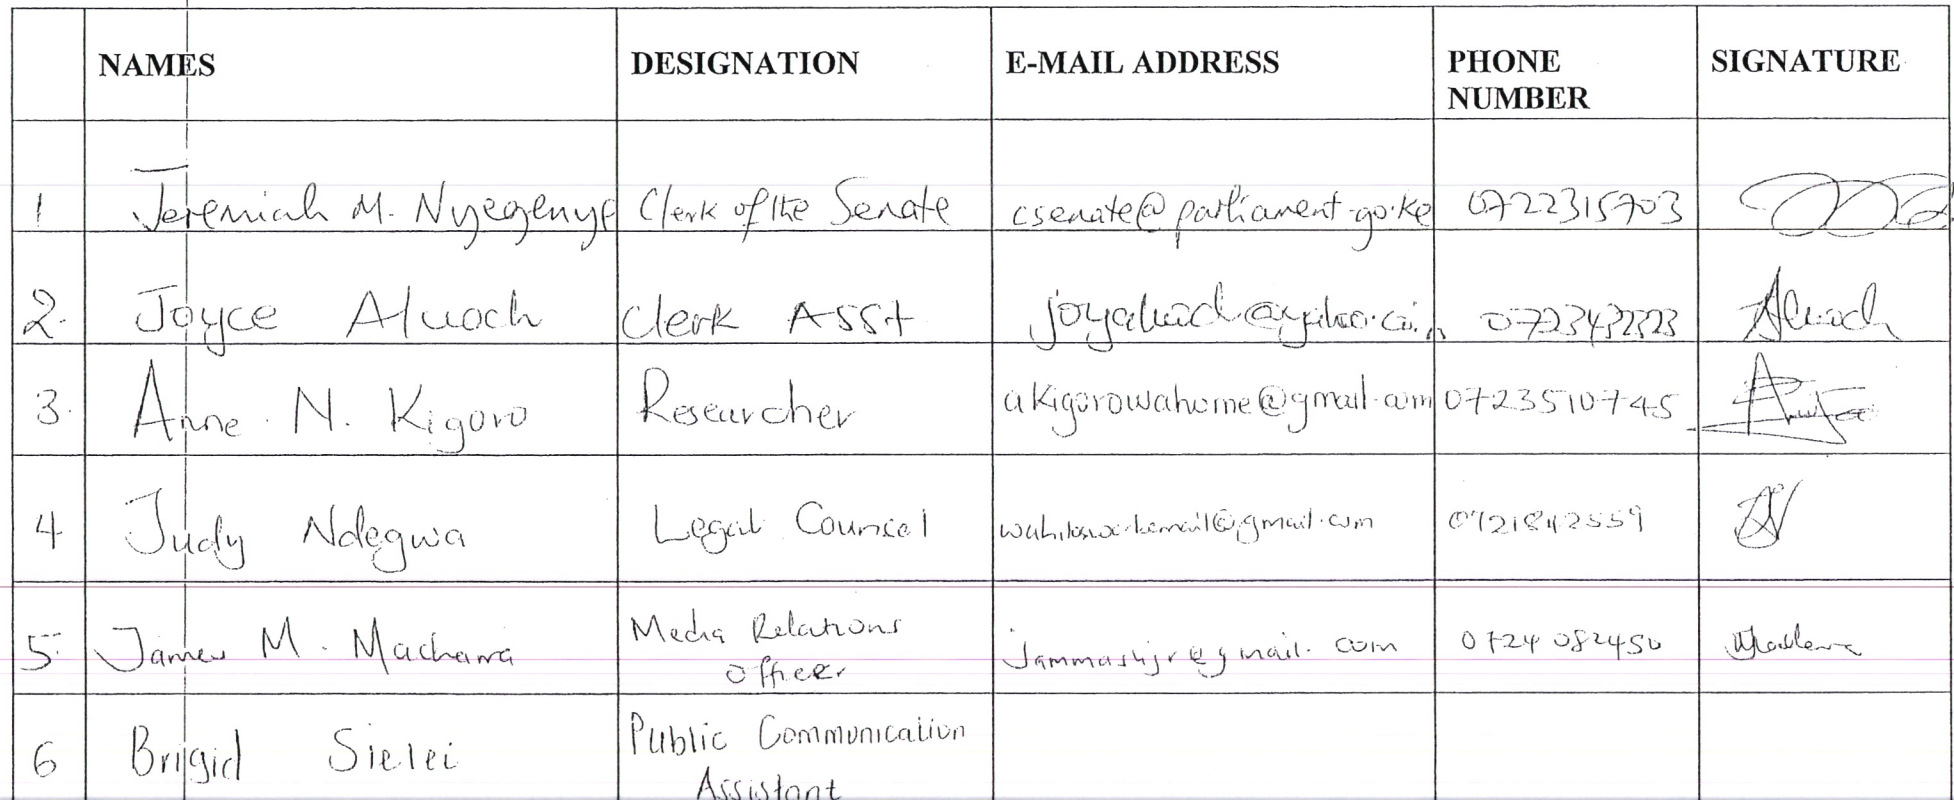 NAMES DESIGNATION E-MAIL ADDRESS PHONE NUMBER SIGNATURE
1 Jeremiah M. Nyegenye Clerk of the Senate csenate@parliament.go.ke 0722315703
2. Joyce Aluoch Clerk Asst 0723432323 Aluoch
3. Anne. N. Kigoro Researcher akigorowahome@gmail.com 0723510745
4. Judy Ndegwa Legal Counsel 0721842559
5. James M. Macharia Media Relations officer jammashjr@gmail.com 0724 082450
6 Brigid Sielei Public Communication Assistant